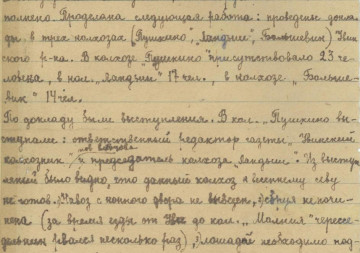 полнено. Проделана следующая работа: проведены докла-
ды в трех колхозах (Пушкино", Ландыш", Большевик)
ского р-на. В колхозе "Пушкино" присутствовало 23 че-
ловека, в кол. "Ландыш" 17 чел., в колхозе "Больше-
вик" 14 чел.
По докладу были выступления. В кол. "Пушкино вы-
ступали: ответственный редактор газеты
колхозник" и председатель колхоза "Ландыш". Из высту-
плений было видно, что данный колхоз к весеннему севу
не готов. Навоз с конного двора не вывезен, сбруя не почи-
нена (за время езды от до кол. "Молния" чересе-
дельник рвался несколько раз), площадь необходимо под-